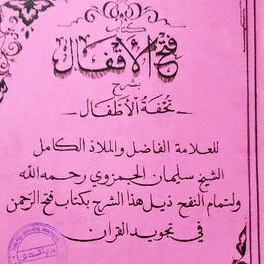 كتاب
فتح الأقفال
بشرح
تحفة الأطفال
للعلامة الفاضل والملاذ الكامل
الشيخ سليمان الجمزوري رحمه الله
ولتمام النفع ذيل هذا الشرح بكتاب فتح الرحمن
في تجويد القرآن